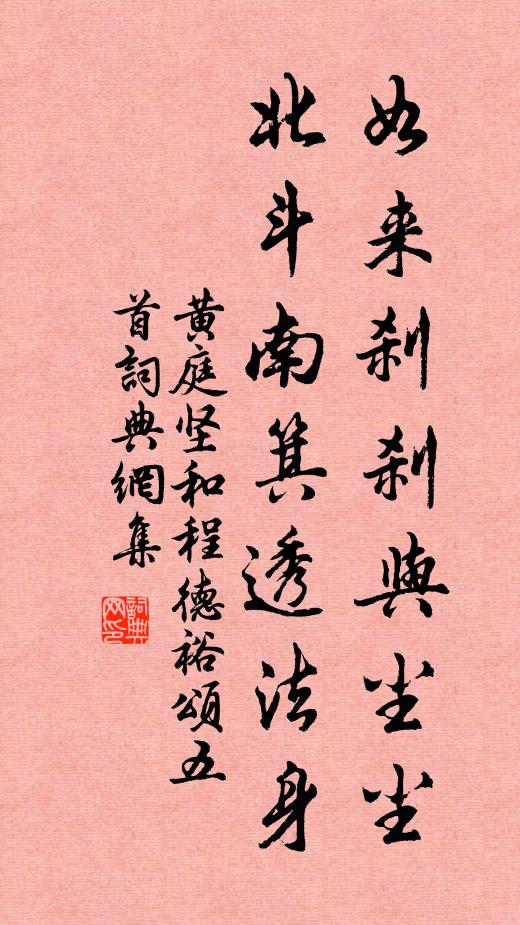 如来刹刹與尘尘
北斗南箕透法身
黄庭坚和程德裕頌五
首詞典網集
詞典
网印